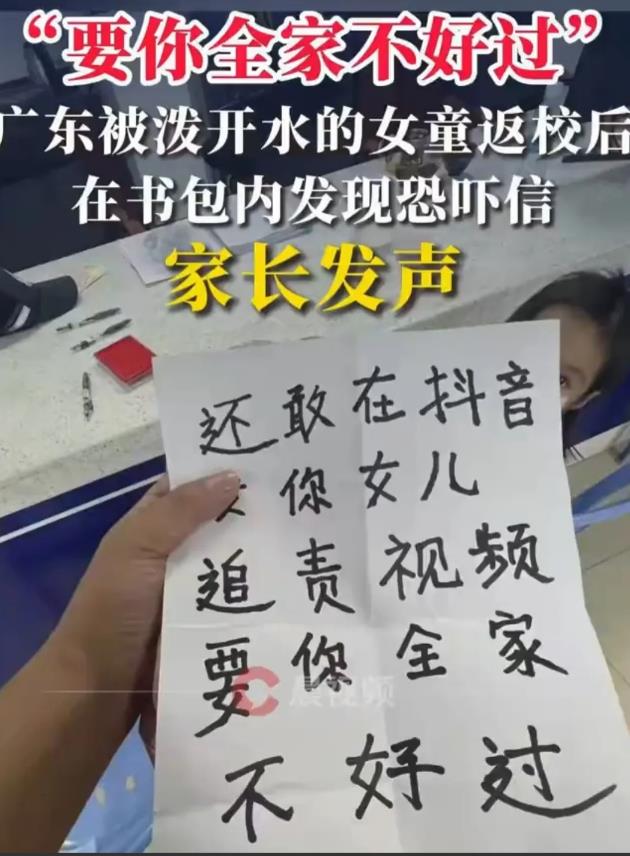 “要你全家不好过”
广东被泼开水的女童返校后
在书包内发现恐吓信
家长发声
还敢在抖音
你女儿
追责视频
要你全家
不好过
晨视频